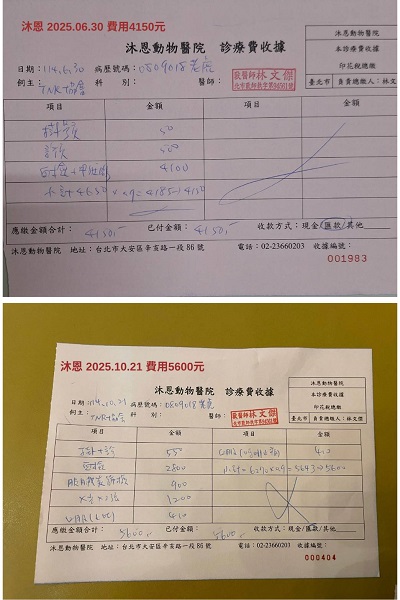 沐恩 2025.06.30 費用4150元
沐恩動物醫院 診療費收據
沐恩動物醫院
本診療費收據
印花稅總繳
臺北市 負責總繳人：林文
日期：114.6.30 病歷號碼：0809018
獸醫師 林文傑
飼主：TNR協會 科別： 醫師：
項目 金額 項目 金額
掛號 50
診 500
4100
小計4650×0.9=4185→4150
應繳金額合計：4150.- 已付金額：4150.- 收款方式：現金/匯款/其他
沐恩動物醫院 地址：台北市大安區辛亥路一段86號 電話：02-23660203 收據編號：
001983
沐恩 2025.10.21 費用5600元
沐恩動物醫院 診療費收據
沐恩動物醫院
本診療費收據
印花稅總繳
臺北市 負責總繳人：林文傑
日期：114.10.21 病歷號碼：0809018
獸醫師 林文傑
飼主：TNR協會 科別： 醫師：
項目 金額 項目 金額
掛+診 550 410
2800 小計=6270×0.9=5643→5600
900
1200
410
應繳金額合計：5600.- 已付金額：5600.- 收款方式：現金/匯款/其他
沐恩動物醫院 地址：台北市大安區辛亥路一段86號 電話：02-23660203 收據編號：
000404